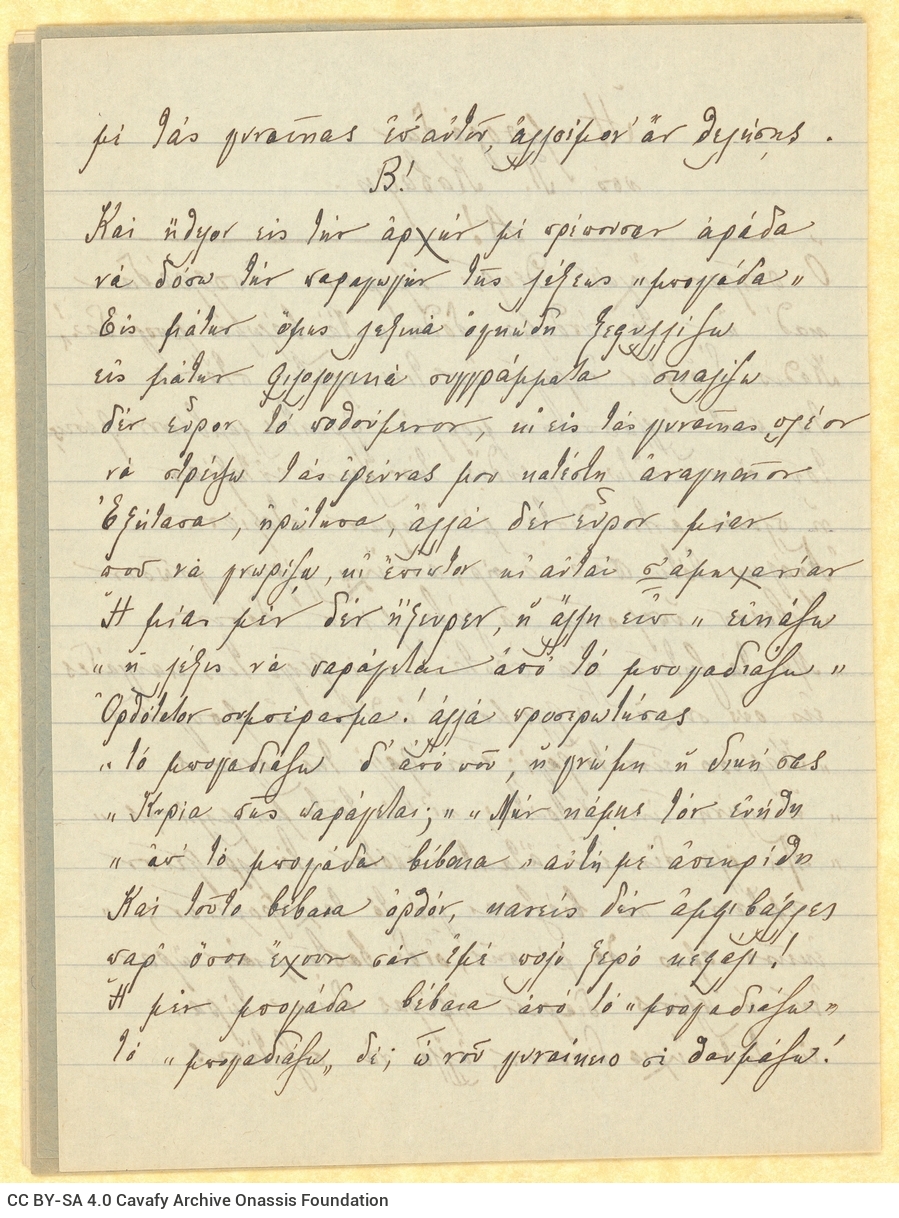 μὲ τὰς γυναῖκας ἐπ' αὐτοῦ, ἀλλοίμον' ἂν θελήσῃς.
Β!
Καὶ ἤθελον εἰς τὴν ἀρχὴν μὲ πρέπουσαν ἀράδα
νὰ δόσω τὴν παραγωγὴν τῆς λέξεως „μπογάδα„
Εἰς μάτην ὅμως λεξικὰ ὀγκώδη ξεφυλλίζω
εἰς μάτην φιλολογικὰ συγγράμματα σκαλίζω
δὲν εὗρον τὸ ποθούμενον, κ' εἰς τὰς γυναῖκας πλέον
νὰ στρέψω τὰς ἐρεύνας μου κατέστη ἀναγκαῖον
Ἐξήτασα, ἠρώτησα, ἀλλὰ δὲν εὗρον μίαν
ποῦ νὰ γνωρίζω, κ' ἔπιπτον κ' αὐταὶ σ' ἀμηχανίαν
Ἡ μία μὲν δὲν ἤξευρεν, ἡ ἄλλη εἶπ' „ εἰκάζω
„ ἡ λέξις νὰ παράγεται ἀπὸ τὸ μπογαδιάζω „
Ὀρθότατον συμπέρασμα! ἀλλὰ προσερωτήσας
„ τὸ μπογαδιάζω δ' ἀπὸ ποῦ, ἡ γνώμη ἡ δική σας
„ Κυρία πῶς παράγεται; „ „ Μὴν κάμῃς τὸν εὐήθη
„ ἀπ' τὸ μπογάδα βέβαια „ αὐτὴ μὲ ἀπεκρίθη
Καὶ τοῦτο βέβαια ὀρθόν, κανεὶς δὲν ἀμφιβάλλει
παρ' ὅσοι ἔχουν σὰν ἐμὲ πολὺ ξερὸ κεφάλι!
Ἡ μὲν μπογάδα βέβαια ἀπὸ τὸ „μπογαδιάζω„
τὸ „μπογαδιάζω„ δὲ; ὦ νοῦ γυναίκειο σὲ θαυμάζω!
CC BY-SA 4.0 Cavafy Archive Onassis Foundation